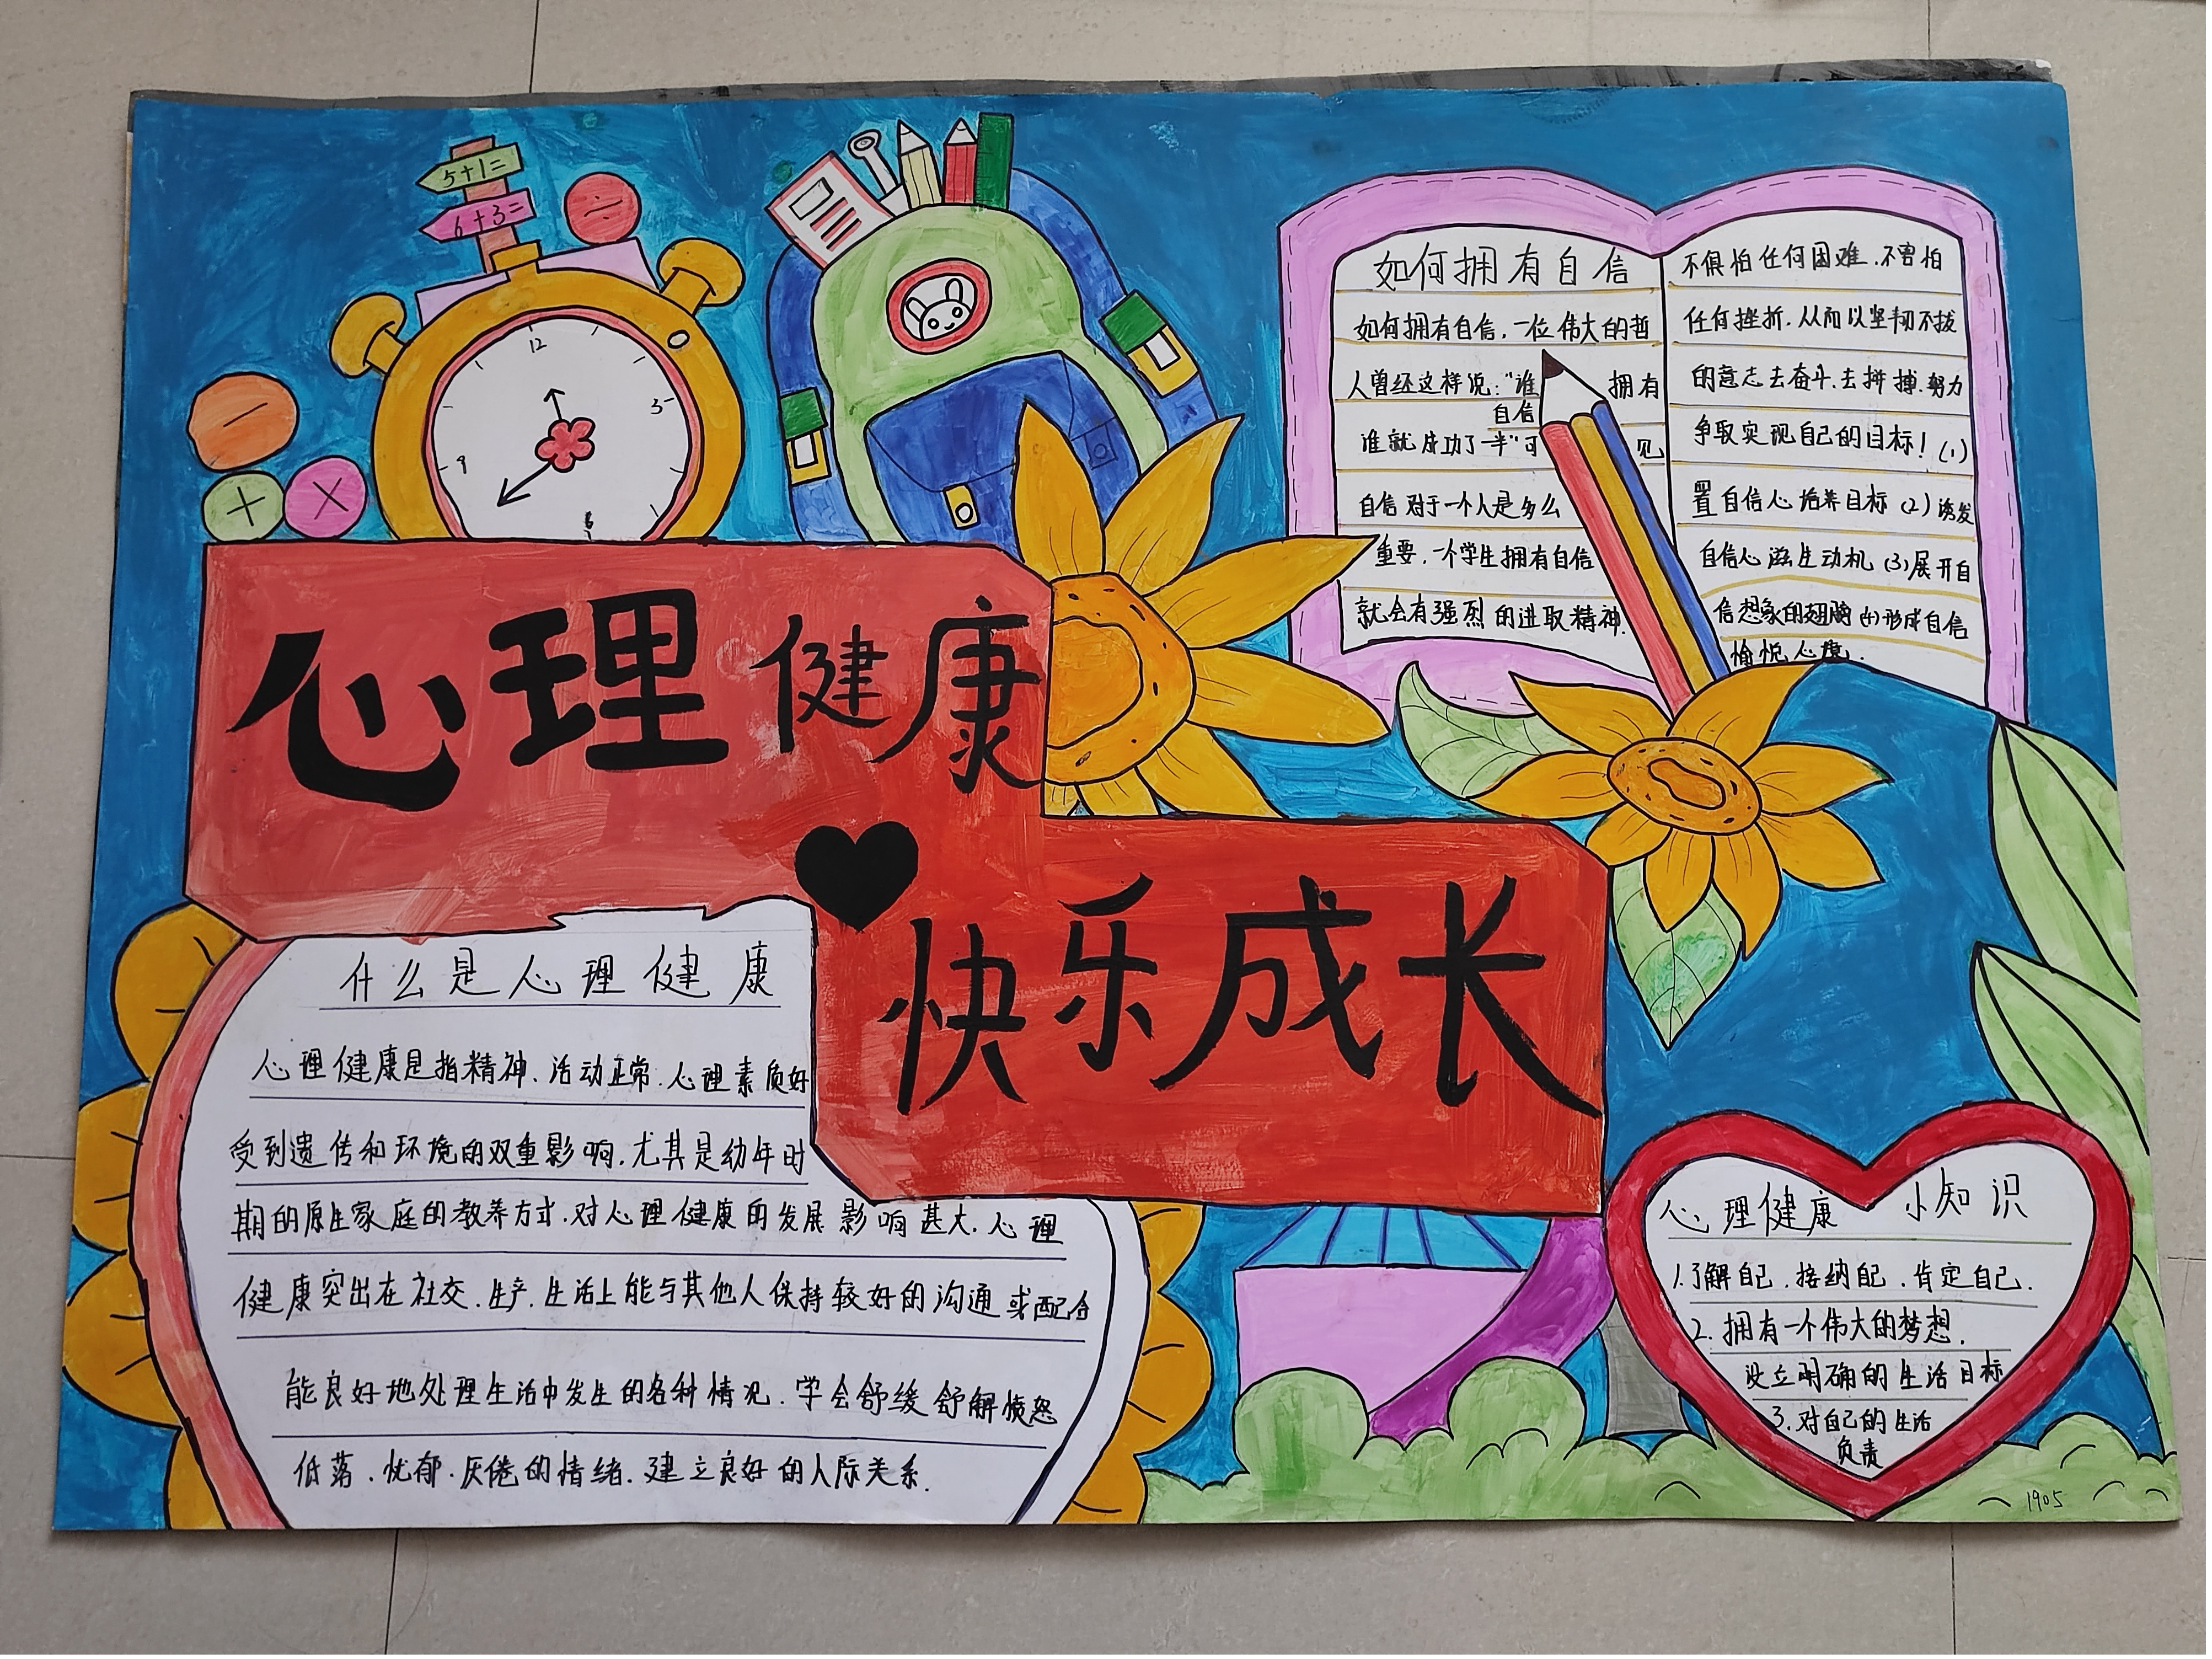 5+1=
6+3=
÷
−
+
×
12
3
6
9
心理健康
快乐成长
如何拥有自信
如何拥有自信，一位伟大的哲
人曾经这样说："谁拥有
自信
谁就成功了一半"可见
自信对于一个人是多么
重要，一个学生拥有自信
就会有强烈的进取精神.
不惧怕任何困难.不害怕
任何挫折.从而以坚韧不拔
的意志去奋斗.去拼搏.努力
争取实现自己的目标！(1)
置自信心培养目标(2)诱发
自信心滋生动机(3)展开自
信想象的翅膀(4)形成自信
愉悦心境.
什么是心理健康
心理健康是指精神、活动正常.心理素质好
受到遗传和环境的双重影响.尤其是幼年时
期的原生家庭的教养方式.对心理健康的发展影响甚大.心理
健康突出在社交.生产.生活上能与其他人保持较好的沟通或配合
能良好地处理生活中发生的各种情况.学会舒缓舒解愤怒
低落.忧郁.厌倦的情绪.建立良好的人际关系.
心理健康 小知识
1.了解自己.接纳自己.肯定自己.
2.拥有一个伟大的梦想.
设立明确的生活目标
3.对自己的生活
负责
1905